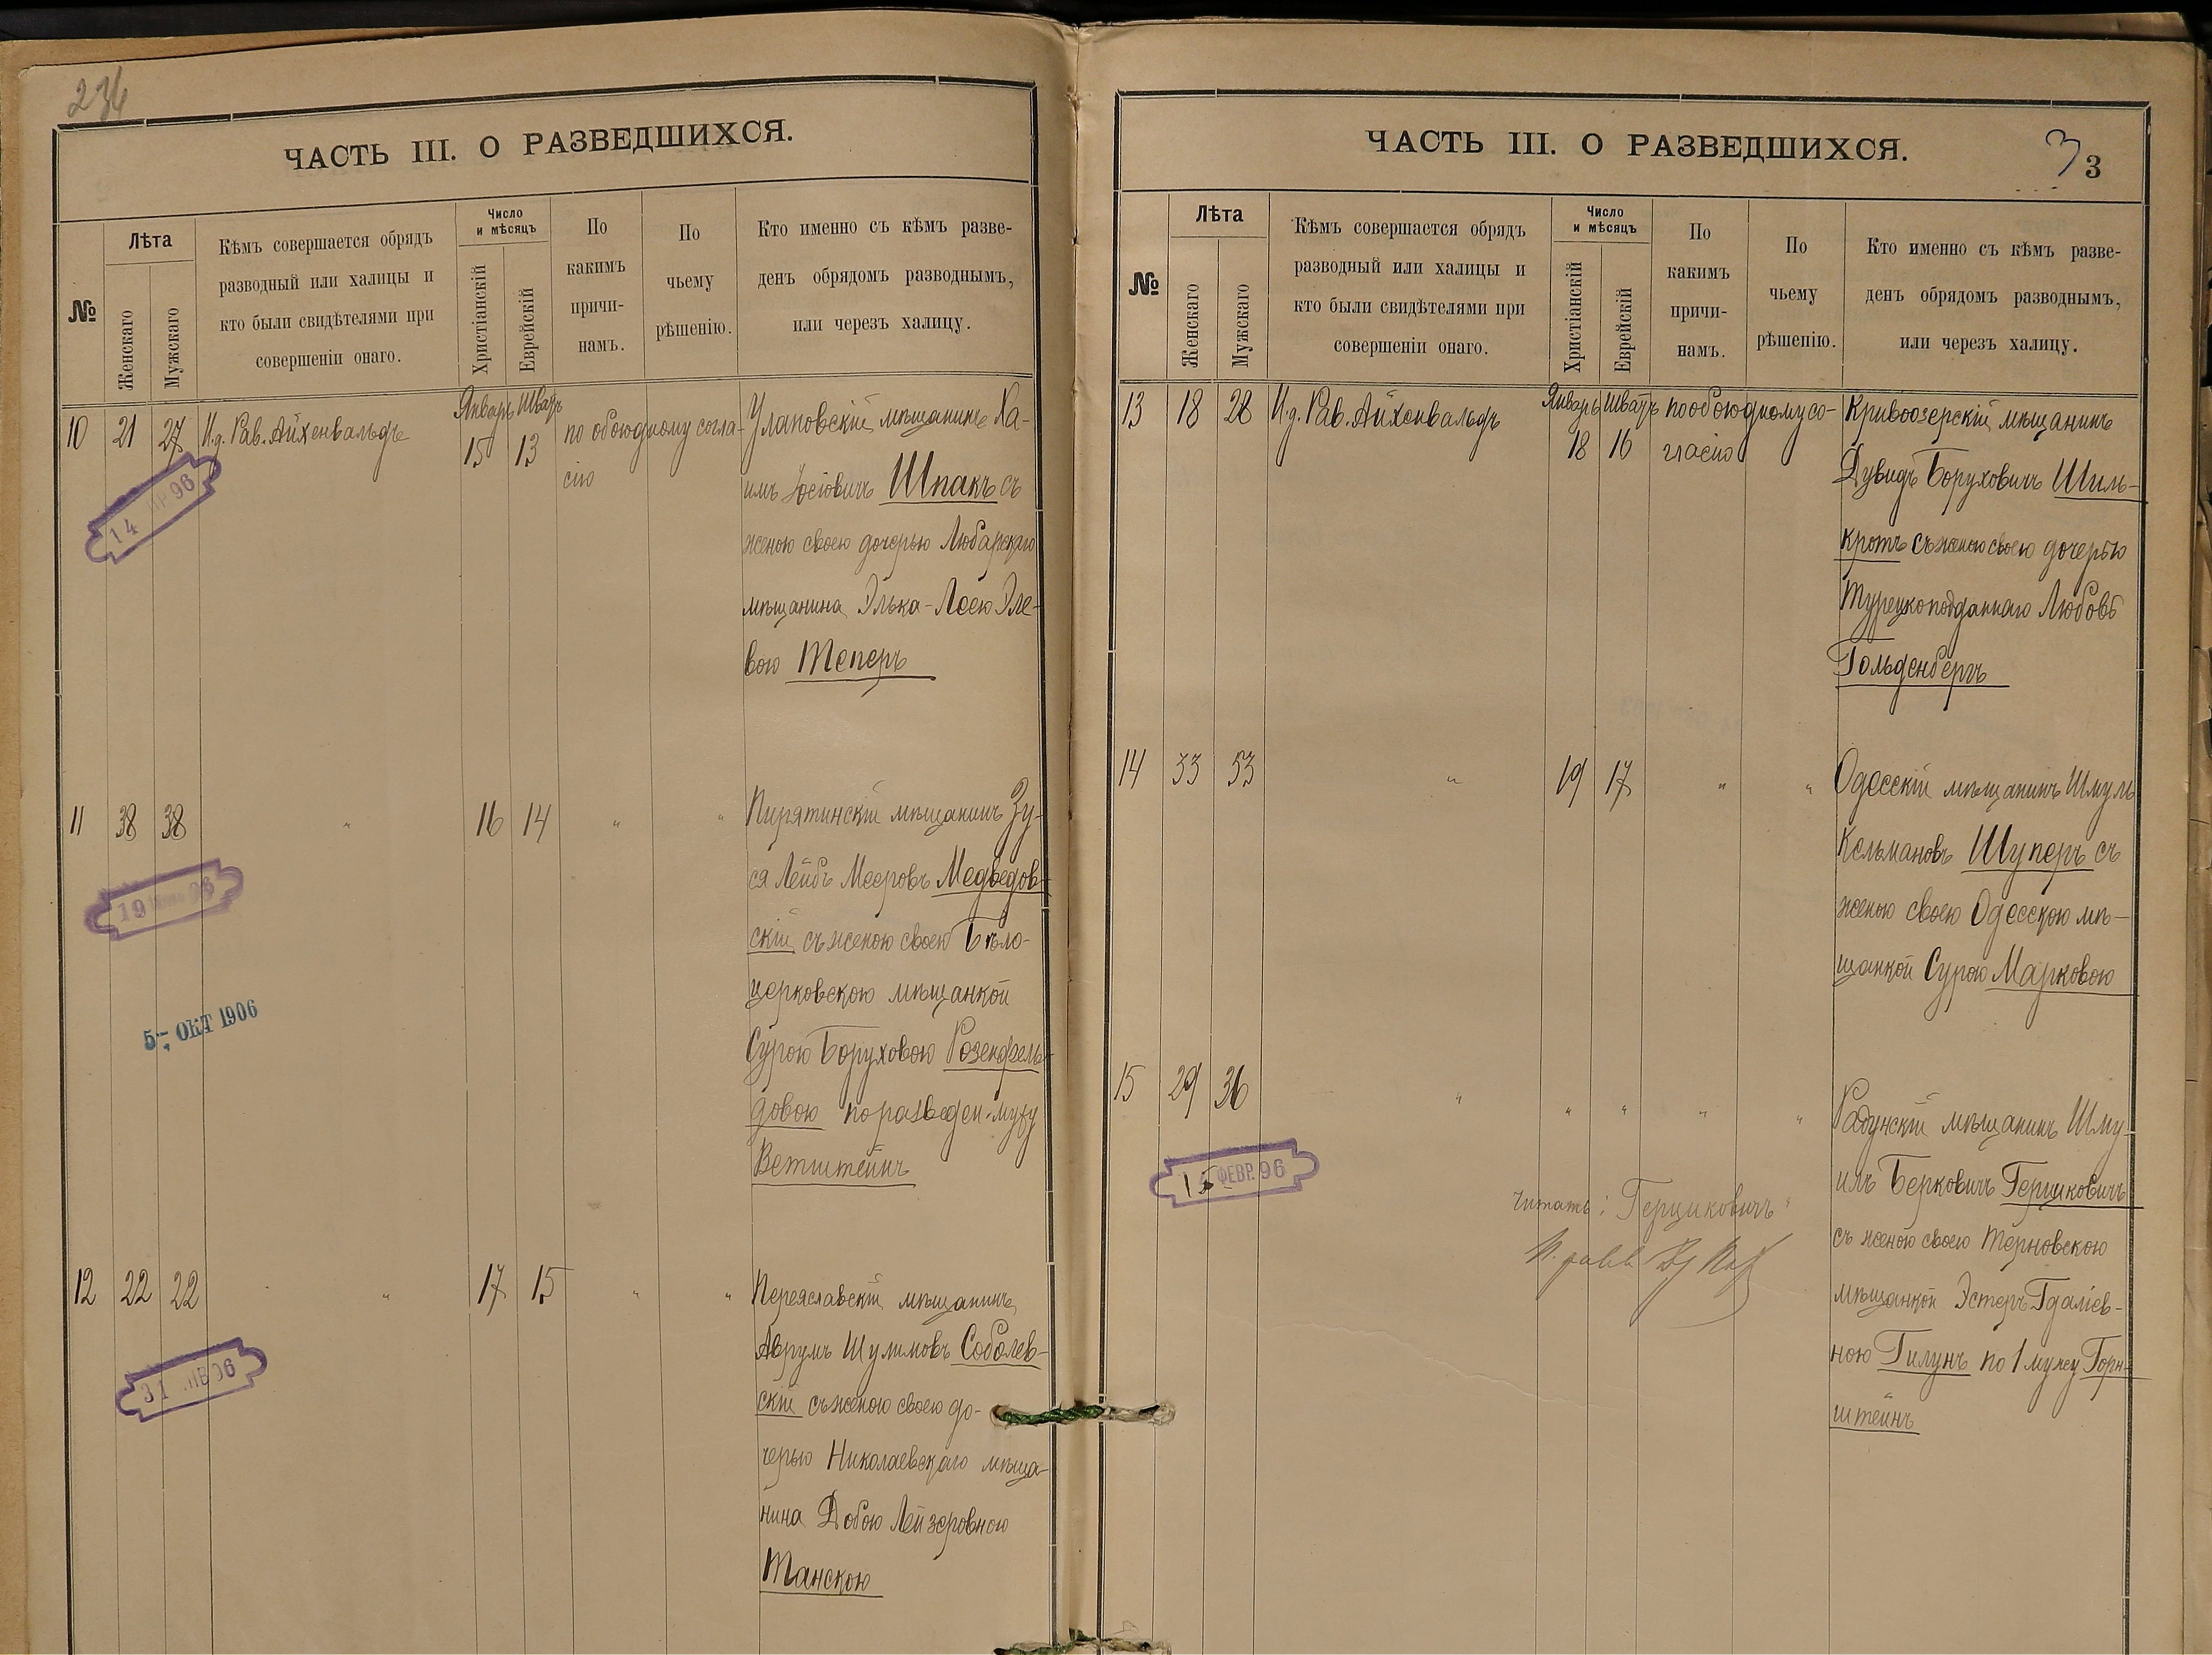 236
ЧАСТЬ III. О РАЗВЕДШИХСЯ.
№
Лѣта
Женскаго
Мужскаго
Кѣмъ совершается обрядъ
разводный или халицы и
кто были свидѣтелями при
совершеніи онаго.
Число
и мѣсяцъ
Христіанскій
Еврейскій
По
какимъ
причи-
намъ.
По
чьему
рѣшенію.
Кто именно съ кѣмъ разве-
денъ обрядомъ разводнымъ,
или черезъ халицу.
10 21 27 И.д. Рав. Айхенвальдъ
Январь Шватъ
15 13
по обоюдному согла-
сію
Улановскій мѣщанинъ Ха-
имъ Іосіовичъ Шпакъ съ
женою своею дочерью Любарскаго
мѣщанина Элька-Леею Эле-
вою Теперъ
11 38 38 " 16 14 " "
Пирятинскій мѣщанинъ Зу-
ся Лейбъ Мееровъ Медведов-
скій съ женою своею Бѣло-
церковскою мѣщанкой
Сурою Боруховою Розенфель-
довою по разведен. мужу
Ветштейнъ
5 ОКТ 1906
12 22 22 " 17 15 " "
Переяславскій мѣщанинъ
Аврумъ Шулимовъ Соболев-
скій съ женою своею до-
черью Николаевскаго мѣща-
нина Добою Лейзеровною
Танскою
ЧАСТЬ III. О РАЗВЕДШИХСЯ.
3
3
№
Лѣта
Женскаго
Мужскаго
Кѣмъ совершается обрядъ
разводный или халицы и
кто были свидѣтелями при
совершеніи онаго.
Число
и мѣсяцъ
Христіанскій
Еврейскій
По
какимъ
причи-
намъ.
По
чьему
рѣшенію.
Кто именно съ кѣмъ разве-
денъ обрядомъ разводнымъ,
или черезъ халицу.
13 18 28 И.д. Рав. Айхенвальдъ
Январь Шватъ
18 16
по обоюдному со-
гласію
Кривоозерскій мѣщанинъ
Дувидъ Боруховичъ Шиль-
кротъ съ женою своею дочерью
Турецкоподданнаго Любовь
Гольденбергъ
14 33 53 " 19 17 " "
Одесскій мѣщанинъ Шмуль
Кельмановъ Шуперъ съ
женою своею Одесскою мѣ-
щанкой Сурою Марковою
15 29 36 " " " " "
Радунскій мѣщанинъ Шму-
илъ Берковичъ Герциковичъ
съ женою своею Терновскою
мѣщанкой Эстеръ Гдаліев-
ною Гилунъ по 1 мужу Горн-
штейнъ
15 ФЕВР. 96
Читать: "Герциковичъ"